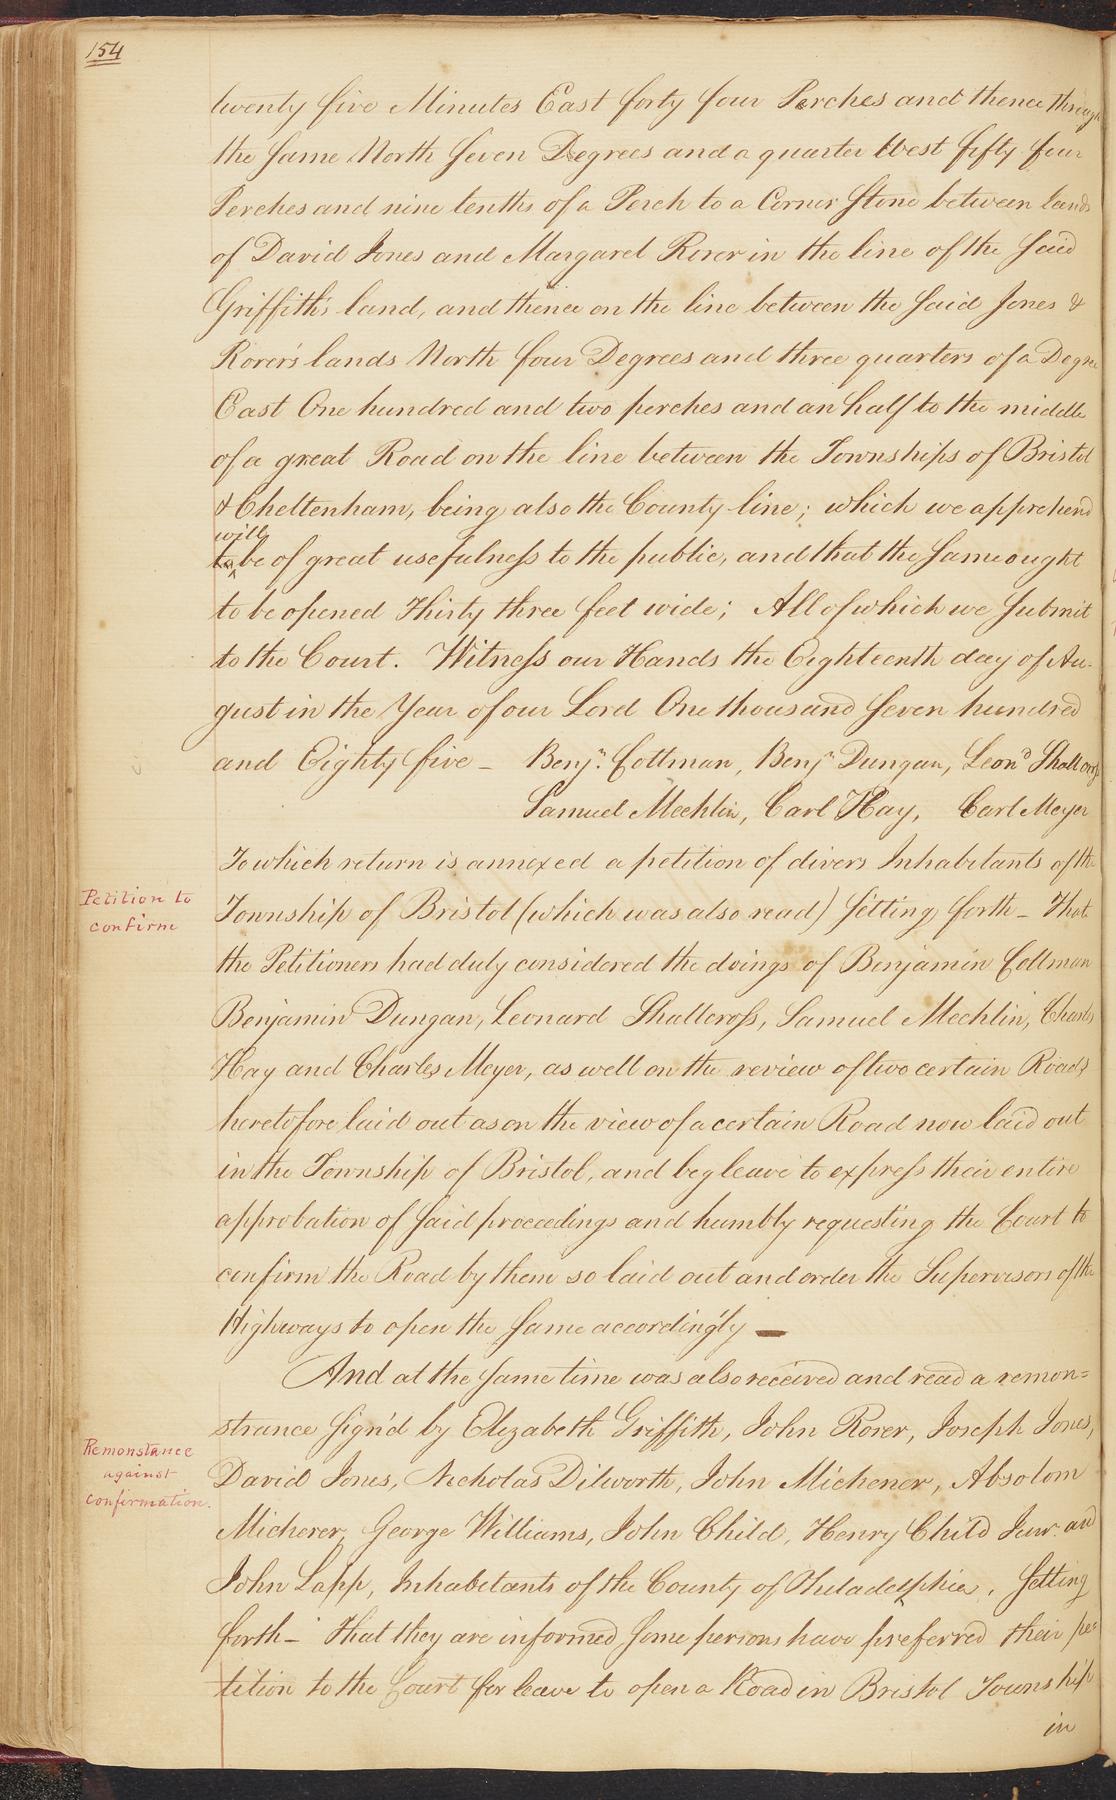 154
twenty five Minutes East forty four Perches and thence through
the same North seven Degrees and a quarter West fifty four
Perches and nine tenths of a Perch to a Corner Stone between lands
of David Jones and Margaret Rorer in the line of the said
Griffith's land, and thence on the line between the said Jones &
Rorer's lands North four Degrees and three quarters of a Degree
East One hundred and two perches and an half to the middle
of a great Road on the line between the Townships of Bristol
& Cheltenham, being also the County line; which we apprehend
will
to be of great usefulness to the public, and that the same ought
to be opened Thirty three feet wide; All of which we submit
to the Court. Witness our Hands the Eighteenth day of Au-
gust in the Year of our Lord One thousand seven hundred
and Eighty five – Benjn. Cottman, Benjn Dungan, Leond Shallcross
Samuel Mechlin, Carl Hay, Carl Meyer
To which return is annexed a petition of divers Inhabitants of the
Petition to
confirm
Township of Bristol (which was also read) setting forth – That
the Petitioners had duly considered the doings of Benjamin Cottman
Benjamin Dungan, Leonard Shallcross, Samuel Mechlin, Charles
Hay and Charles Meyer, as well on the review of two certain Roads
heretofore laid out as on the view of a certain Road now laid out
in the Township of Bristol, and beg leave to express their entire
approbation of said proceedings and humbly requesting the Court to
confirm the Road by them so laid out and order the Supervisors of the
Highways to open the same accordingly —
And at the same time was also received and read a remon=
strance sign'd by Elizabeth Griffith, John Rorer, Joseph Jones,
Remonstance
against
confirmation.
David Jones, Nicholas Dilworth, John Michener, Absolom
Michener, George Williams, John Child, Henry Child Junr. and
John Lapp, Inhabitants of the County of Philadelphia, setting
forth – That they are informed some persons have preferred their pe=
tition to the Court for leave to open a Road in Bristol Township
in